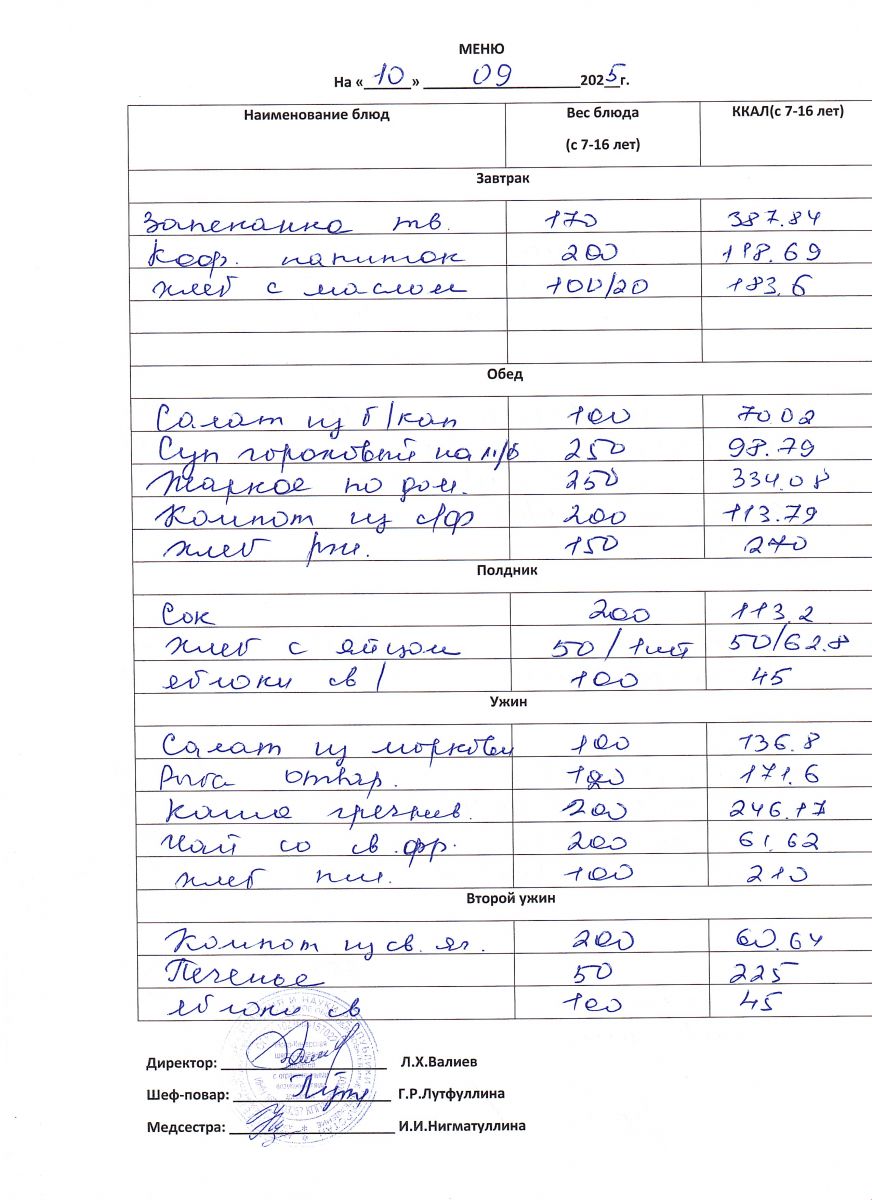 МЕНЮ
На «10» 09 2025г.
Наименование блюд Вес блюда (с 7-16 лет) ККАЛ(с 7-16 лет)
Завтрак
Запеканка тв. 170 387.84
Коф. напиток 200 118.69
хлеб с маслом 100/20 183.6
Обед
Салат из б/кап 100 70.02
Суп гороховый на м/б 250 98.79
Жаркое по дом. 250 334.08
Компот из с/ф 200 113.79
хлеб рж. 150 270
Полдник
Сок 200 113.2
хлеб с яйцом 50/1шт 50/62.8
яблоки св/ 100 45
Ужин
Салат из моркови 100 136.8
Рыба отвар. 120 171.6
Каша гречнев. 200 246.17
Чай со св.фр. 200 61.62
хлеб пш. 100 210
Второй ужин
Компот из св. яг. 200 60.64
Печенье 50 225
яблоки св 100 45
Директор: Л.Х.Валиев
Шеф-повар: Г.Р.Лутфуллина
Медсестра: И.И.Нигматуллина